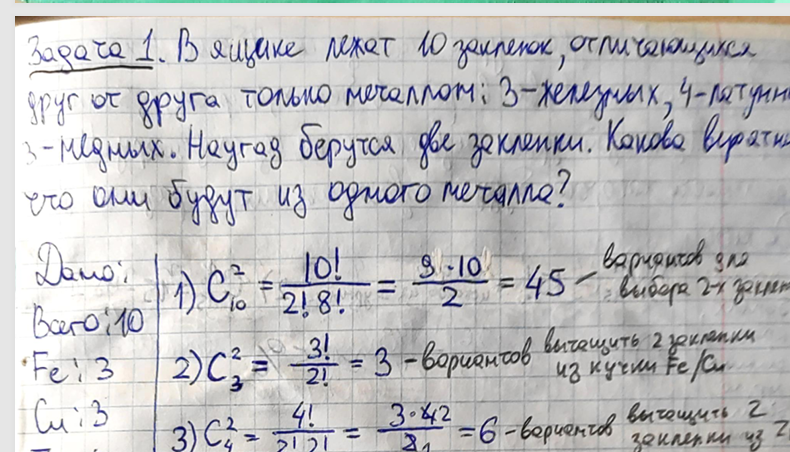 Задача 1. В ящике лежат 10 заклепок, отличающихся
друг от друга только металлом: 3-железных, 4-латунн
3-медных. Наугад берутся две заклепки. Какова вероятно
что они будут из одного металла?
Дано:
Всего: 10
Fe: 3
Cu: 3
1) C₁₀² = 10!/(2! 8!) = (9·10)/2 = 45 – вариантов для
выбора 2-х заклеп
2) C₃² = 3!/2! = 3 – вариантов вытащить 2 заклепки
из кучки Fe/Cu
3) C₄² = 4!/(2! 2!) = (3·4 2)/(2 1) = 6 – вариантов вытащить 2
заклепки из Z